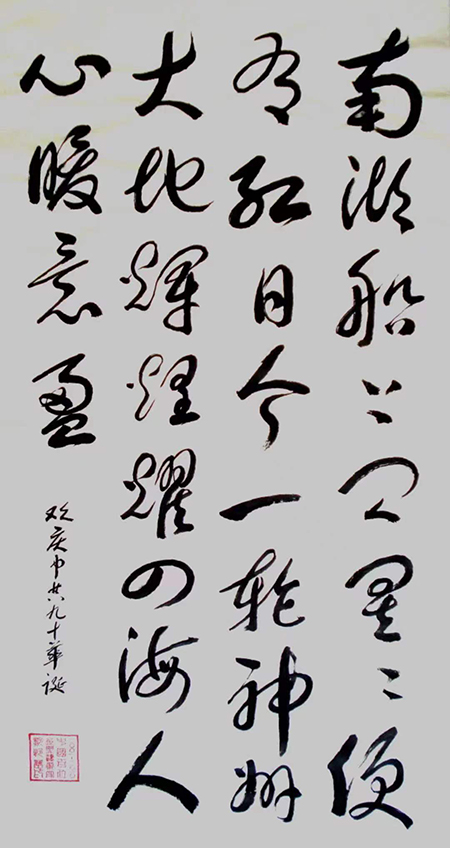 南湖船上星星便
有红日今一轮神州
大地煇煌燿四海人
心暖意盈
欢庆中共九十華诞